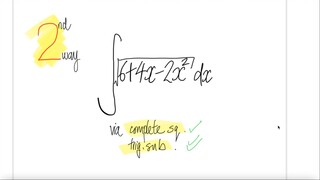 2nd way
∫√(6+4x-2x²) dx
via complete sq. ✓
trig. sub. ✓